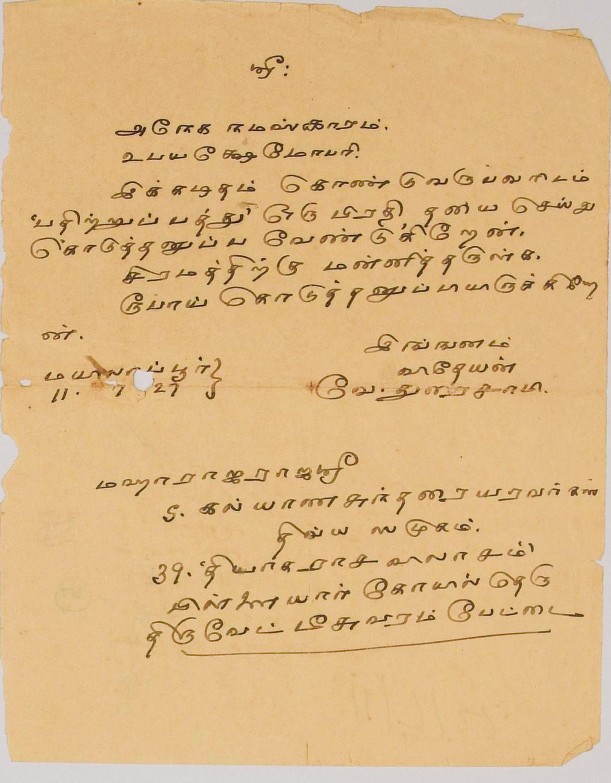 ஸ்ரீ:
அநேக நமஸ்காரம்.
உபய க்ஷேமோபரி.
இக்கடிதம் கொண்டுவருபவரிடம்
'பதிற்றுப்பத்து' ஒரு பிரதி தயை செய்து
கொடுத்தனுப்ப வேண்டுகிறேன்.
சிரமத்திற்கு மன்னித்தருள்க.
ரூபாய் கொடுத்தனுப்பியிருக்கிறே
ன்.
இங்ஙனம்
மயிலாப்பூர்}
விதேயன்
11. 7 27
வே. துரைசாமி.
மஹாராஜராஜஸ்ரீ
S. கல்யாணசுந்தரையரவர்கள்
திவ்ய ஸமுகம்.
39. 'தியாகராச விலாசம்'
பிள்ளையார் கோயில் தெரு
திருவேட்டீசுவரம் பேட்டை